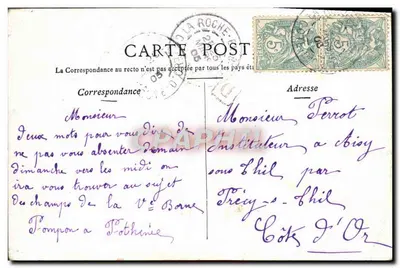 CARTE POSTALE
La Correspondance au recto n'est pas acceptée par tous les pays
Correspondance
Adresse
Monsieur
deux mots pour vous dire de
ne pas vous absenter demain
dimanche vers les midi on
ira vous trouver au sujet
des champs de la Vve Borne
Pompon a Pothenée
Monsieur Perrot
Instituteur a Aisy
sous Thil par
Précy-s-Thil
Côte d'Or
LA ROCHE
5
5